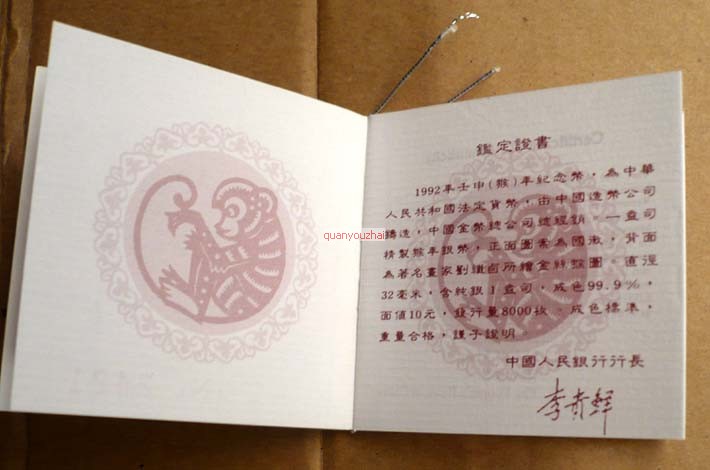 quanyouzhai
鑑定證書
1992年壬申(猴)年紀念幣，為中華
人民共和國法定貨幣，由中國造幣公司
鑄造，中國金幣總公司總經銷，一盎司
精製猴年銀幣，正面圖案為國徽，背面
為著名畫家劉繼卣所繪金絲猴圖。直徑
32毫米，含純銀1盎司，成色99.9%，
面值10元，發行量8000枚。成色標準，
重量合格，謹予證明
中國人民銀行行長
李貴鮮